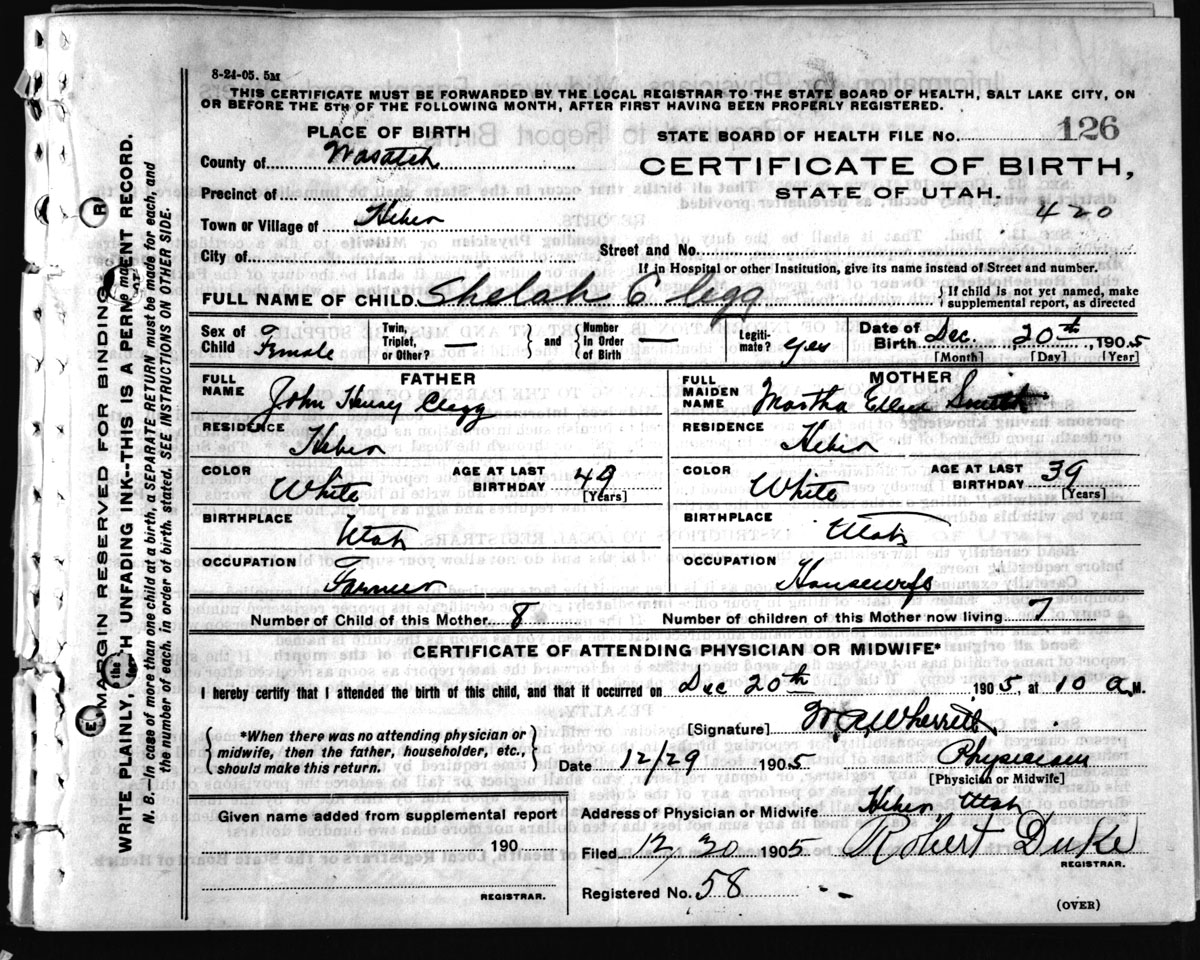 8-24-05. 5M
THIS CERTIFICATE MUST BE FORWARDED BY THE LOCAL REGISTRAR TO THE STATE BOARD OF HEALTH, SALT LAKE CITY, ON
OR BEFORE THE 5TH OF THE FOLLOWING MONTH, AFTER FIRST HAVING BEEN PROPERLY REGISTERED.
PLACE OF BIRTH
STATE BOARD OF HEALTH FILE No. 126
County of Wasatch
CERTIFICATE OF BIRTH,
Precinct of
STATE OF UTAH,
Town or Village of Heber
420
City of
Street and No.
If in Hospital or other Institution, give its name instead of Street and number.
FULL NAME OF CHILD Shelah Clegg
{If child is not yet named, make
supplemental report, as directed
Sex of Child Female
Twin, Triplet, or Other? —
and
Number In Order of Birth —
Legiti-mate? yes
Date of Birth Dec. 20th, 1905
[Month] [Day] [Year]
FATHER
FULL NAME John Henry Clegg
RESIDENCE Heber
COLOR White
AGE AT LAST BIRTHDAY 49 [Years]
BIRTHPLACE Utah
OCCUPATION Farmer
MOTHER
FULL MAIDEN NAME Martha Ellen Smith
RESIDENCE Heber
COLOR White
AGE AT LAST BIRTHDAY 39 [Years]
BIRTHPLACE Utah
OCCUPATION Housewife
Number of Child of this Mother 8
Number of children of this Mother now living 7
CERTIFICATE OF ATTENDING PHYSICIAN OR MIDWIFE*
I hereby certify that I attended the birth of this child, and that it occurred on Dec 20th, 1905, at 10 a M.
[Signature] Wherritt
*When there was no attending physician or
midwife, then the father, householder, etc.,
should make this return.
Date 12/29 1905
Physician
[Physician or Midwife]
Given name added from supplemental report
190
REGISTRAR.
Address of Physician or Midwife Heber Utah
Filed 12/30 1905 Robert Duke
REGISTRAR.
Registered No. 58
(OVER)
MARGIN RESERVED FOR BINDING
WRITE PLAINLY, WITH UNFADING INK--THIS IS A PERMANENT RECORD.
N. B.—In case of more than one child at birth, a SEPARATE RETURN must be made for each, and
the number of each, in order of birth, stated. SEE INSTRUCTIONS ON OTHER SIDE.